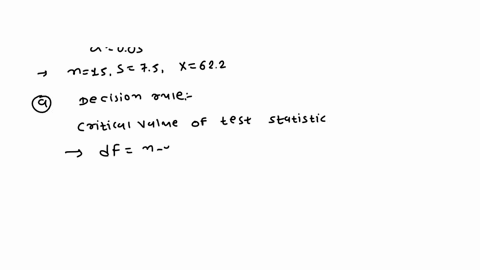 → n=15, S=7.5, X=62.2
a Decision rule:-
critical value of test statistic
→ df = n-